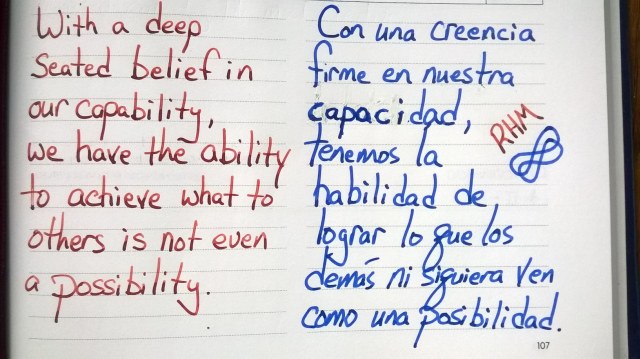 With a deep
Seated belief in
our capability,
we have the ability
to achieve what to
others is not even
a possibility.
Con una creencia
firme en nuestra
capacidad,
tenemos la
habilidad de
lograr lo que los
demás ni siquiera ven
como una posibilidad.
RHM
107